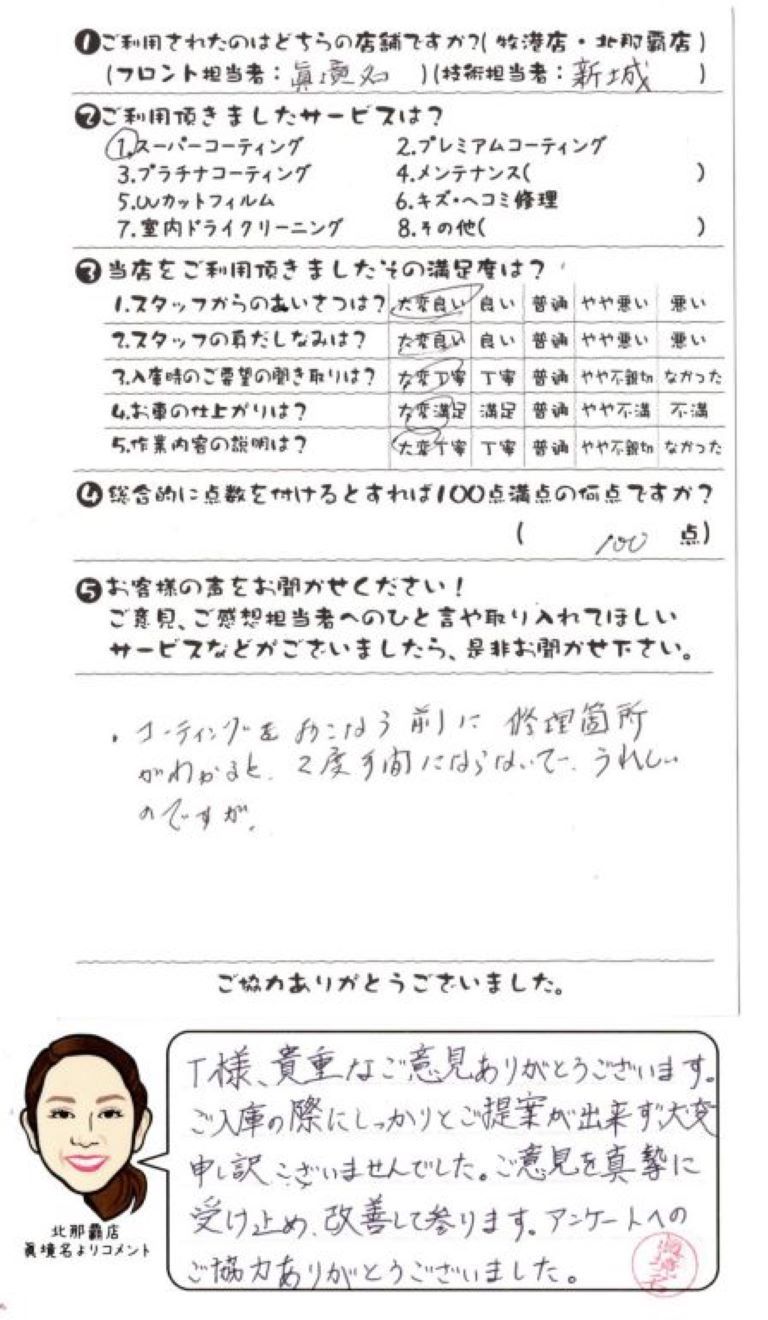 ❶ご利用されたのはどちらの店舗ですか?(牧港店・北那覇店)
(フロント担当者:眞境名)(技術担当者:新城)
❷ご利用頂きましたサービスは?
1.スーパーコーティング 2.プレミアムコーティング
3.プラチナコーティング 4.メンテナンス( )
5.UVカットフィルム 6.キズ・ヘコミ修理
7.室内ドライクリーニング 8.その他( )
❸当店をご利用頂きましたその満足度は?
1.スタッフからのあいさつは? 大変良い 良い 普通 やや悪い 悪い
2.スタッフの身だしなみは? 大変良い 良い 普通 やや悪い 悪い
3.入庫時のご要望の聞き取りは? 大変丁寧 丁寧 普通 やや不親切 なかった
4.お車の仕上がりは? 大変満足 満足 普通 やや不満 不満
5.作業内容の説明は? 大変丁寧 丁寧 普通 やや不親切 なかった
❹総合的に点数を付けるとすれば100点満点の何点ですか?
( 100 点)
❺お客様の声をお聞かせください!
ご意見、ご感想担当者へのひと言や取り入れてほしい
サービスなどがございましたら、是非お聞かせ下さい。
・コーティングをおこなう前に 修理箇所
がわかると、2度手間にならないで、うれしい
のですが。
ご協力ありがとうございました。
T様、貴重なご意見ありがとうございます。
ご入庫の際にしっかりとご提案が出来ず大変
申し訳ございませんでした。ご意見を真摯に
受け止め、改善して参ります。アンケートへの
ご協力ありがとうございました。
北那覇店
眞境名よりコメント